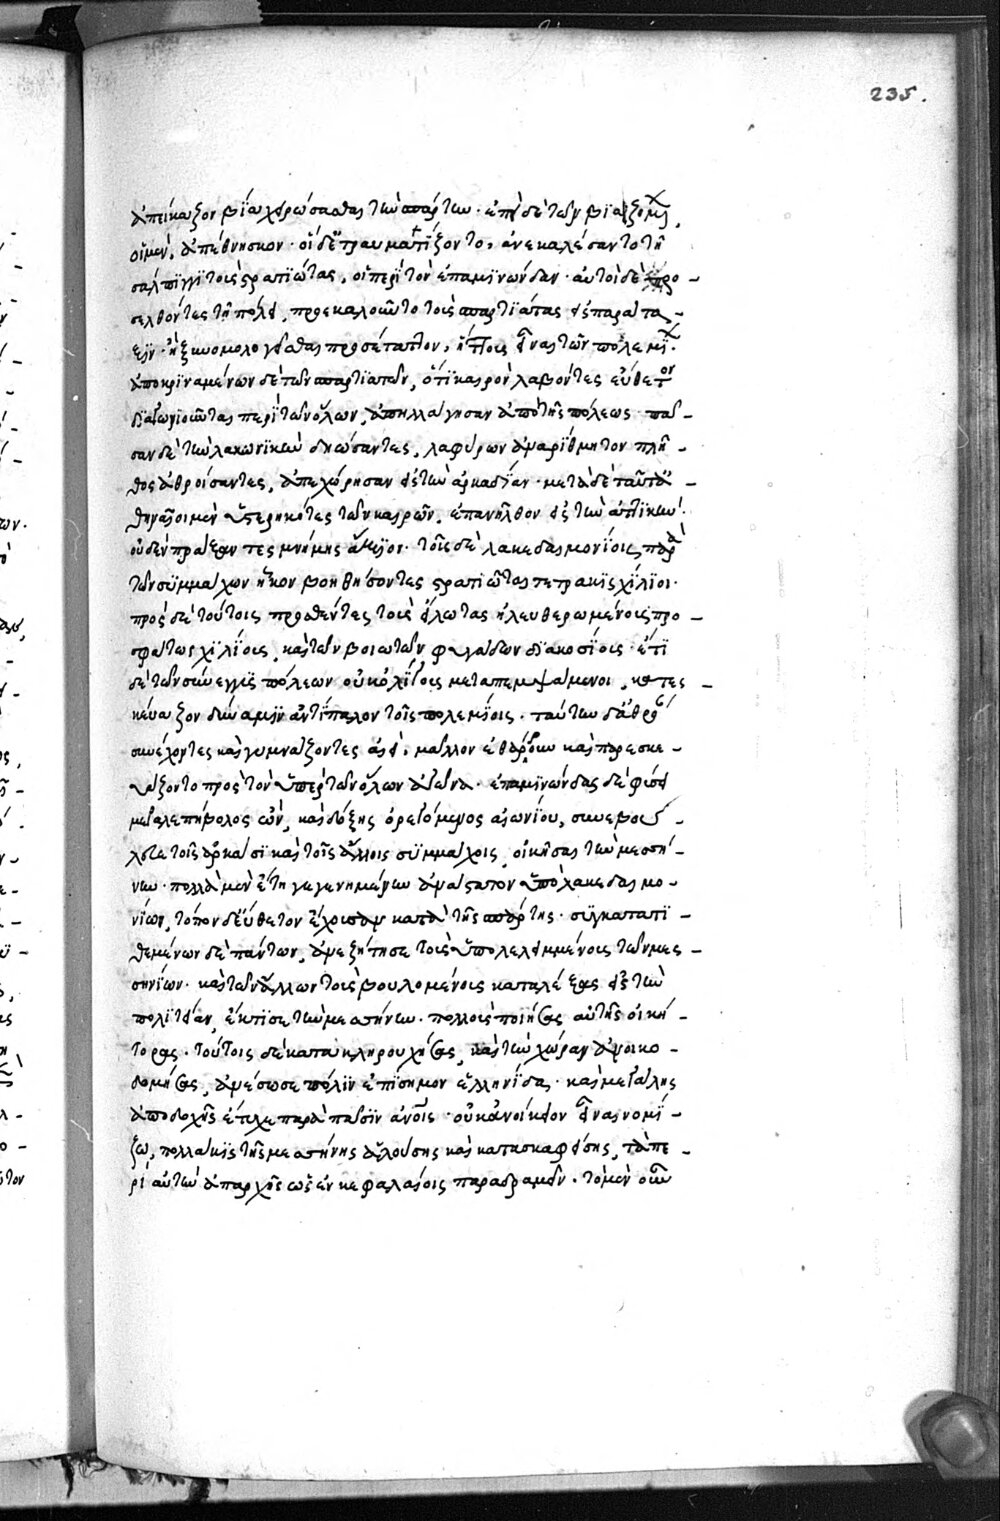 ἀπείκαζον βίᾳ χειρώσασθαι τὴν σπάρτην. ἐπεὶ δὲ τῶν βιαζομένων
οἱ μὲν ἀπέθνησκον· οἱ δὲ ἐτραυματίζοντο, ἀνεκαλέσαντο τῆ
σάλπϊγγι τοὺς στρατϊώτας, οἱ περὶ τὸν ἐπαμϊνώνδαν· αὐτοὶ δὲ προ-
σελθόντες τῆ πόλει, προεκαλοῦντο τοὺς σπαρτϊάτας εἰς παράτα-
ξϊν· ἢ ἐξωομολογεῖσθαι προσέταττον, ἥττους εἶναι τῶν πολεμΐων·
ἀποκρϊναμένων δὲ τῶν σπαρτϊατῶν, ὅτϊ καιρὸν λαβόντες εὔθετον
δϊαγωνϊοῦνται περὶ τῶν ὅλων, ἀπηλλάγησαν ἀπὸ τῆς πόλεως· πᾶ-
σαν δὲ τὴν λακωνϊκὴν δηώσαντες, λαφύρων ἀναρίθμητον πλῆ-
θος ἀθροίσαντες, ἀπεχώρησαν εἰς τὴν ἀρκαδΐαν· μετὰ δὲ ταῦτα ἀ-
θηναῖοι μὲν ὑστερηκότες τῶν καιρῶν, ἐπανῆλθον εἰς τὴν ἀττϊκὴν·
οὐδὲν πράξαντες μνήμης ἄξϊον· τοῖς δὲ λακεδαιμονΐοις παρὰ
τῶν συμμάχων ἧκον βοηθήσοντες στρατϊῶται τετρακϊς χΐλϊοι·
πρὸς δὲ τούτοις προσθέντες τοὺς εἵλωτας ἠλευθερωμένους προ-
σφάτως χϊλΐους, καὶ τῶν βοιωτῶν φυγάδων δϊακοσΐους· ἔτϊ
δὲ τῶν σύνεγγυς πόλεων οὐκ ὀλΐγους μεταπεμψάμενοι, κατεσ
κεύαζον δύναμϊν ἀντίπαλον τοῖς πολεμΐοις· ταύτην δ' ἀθρόαν
συνέχοντες καὶ γυμνάζοντες ἀεὶ, μᾶλλον ἐθάρρουν καὶ παρεσκε-
υάζοντο πρὸς τὸν ὑπὲρ τῶν ὅλων ἀγῶνα· ἐπαμϊνώνδας δὲ φύσει
μεγαλεπήβολος ὢν, καὶ δόξης ὀρεγόμενος αἰωνΐου, συνεβού-
λευε τοῖς ἀρκάσϊ καὶ τοῖς ἄλλοις συμμάχοις, οἰκῆσαι τὴν μεσσή-
νην· πολλὰ μὲν ἔτη γεγενημένην ἀνάστατον ὑπὸ λακεδαιμο-
νΐων, τόπον δ' εὔθετον ἔχουσαν κατὰ τῆς σπάρτης· συγκαταιτϊ-
θεμένων δὲ πάντων, ἀνεζήτησε τοὺς ὑπολελειμμένους τῶν μεσ-
σηνΐων· καὶ τῶν ἄλλων τοὺς βουλομένους καταλέξας εἰς τὴν
πολϊτείαν, ἔκτϊσε τὴν μεσήνην· πολλοὺς ποιήσας αὐτῆς οἰκή-
τορας· τούτοις δὲ κατακληρουχήσας, καὶ τὴν χώραν ἀνοικο-
δομήσας, ἀνέσωσε πόλϊν ἐπΐσημον ἑλληνΐδα· καὶ μεγάλης
ἀποδοχῆς ἔτυχε παρὰ πᾶσϊν ἀνοῖς· οὐκ ἀνοίκειον εἶναι νομΐ-
ζω, πολλάκϊς τῆς μεσήνης ἁλούσης καὶ κατασκαφείσης, τὰ πε-
ρὶ αὐτὴν ἀπαρχῆς ὡς ἐν κεφαλαίοις παραδραμεῖν· τὸ μὲν οὖν